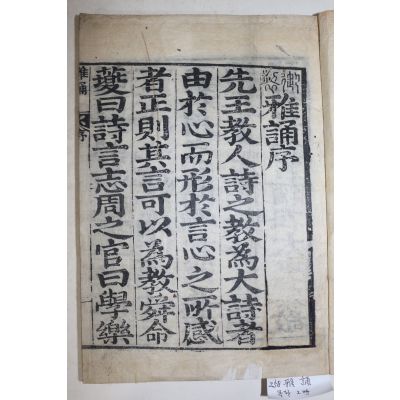 御定雅誦序
先王教人詩之教為大詩者
由於心而形於言心之所感
者正則其言可以為教舜命
夔曰詩言志周之官曰學樂
雅誦 序
雅誦